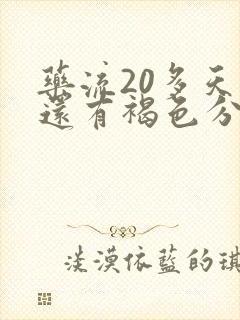 藥流20多天
還有褐色分
淡漠依藍的琪